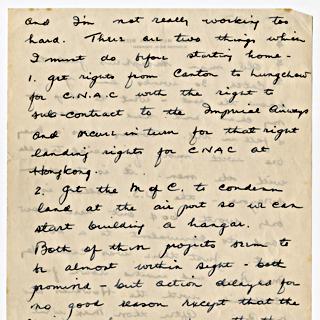 and I'm not really working too
hard. There are two things which
I must do before starting home -
1. get rights from Canton to Lungchow
for C.N.A.C with the right to
sub-contract to the Imperial Airways
and secure in turn for that right
landing rights for CNAC at
Hongkong.
2. Get the M of C. to condemn
land at the air port so we can
start building a hangar.
Both of these projects seem to
be almost within sight - both
promised - but action delayed for
no good reason except that the